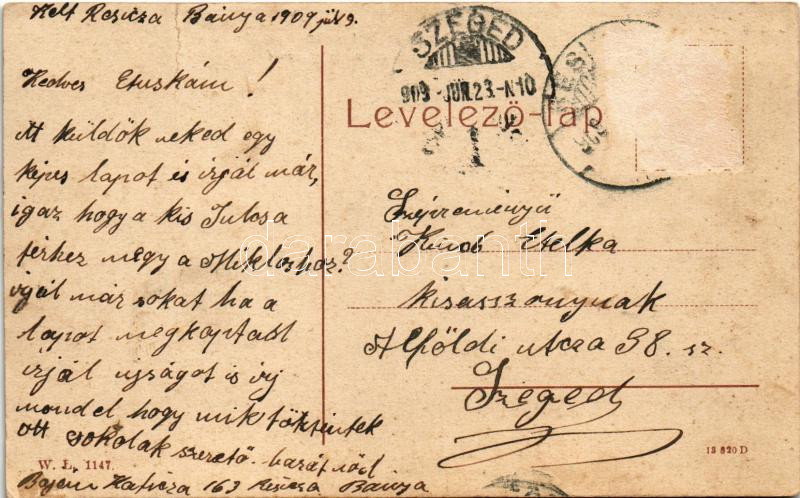 Kelt Resicza Bánya 1909 júl 9.
SZEGED
909 JUN.23.-N10
Levelező-lap
Kedves Etuskám!
Itt küldök neked egy
képes lapot is írjál már,
igaz hogy a kis Julcsa
férhez megy a Mikloshoz?
írjál már sokat ha a
lapot megkaptad
írjál ujságot is írj
mondel hogy mik történtek
ott sokolak szerető barátnőd
Katicza 163 Resicza Bánya
W. L. 1147.
Etelka
kisasszonynak
Alföldi utcza 38. sz.
Szeged
13 820 D
darabanth